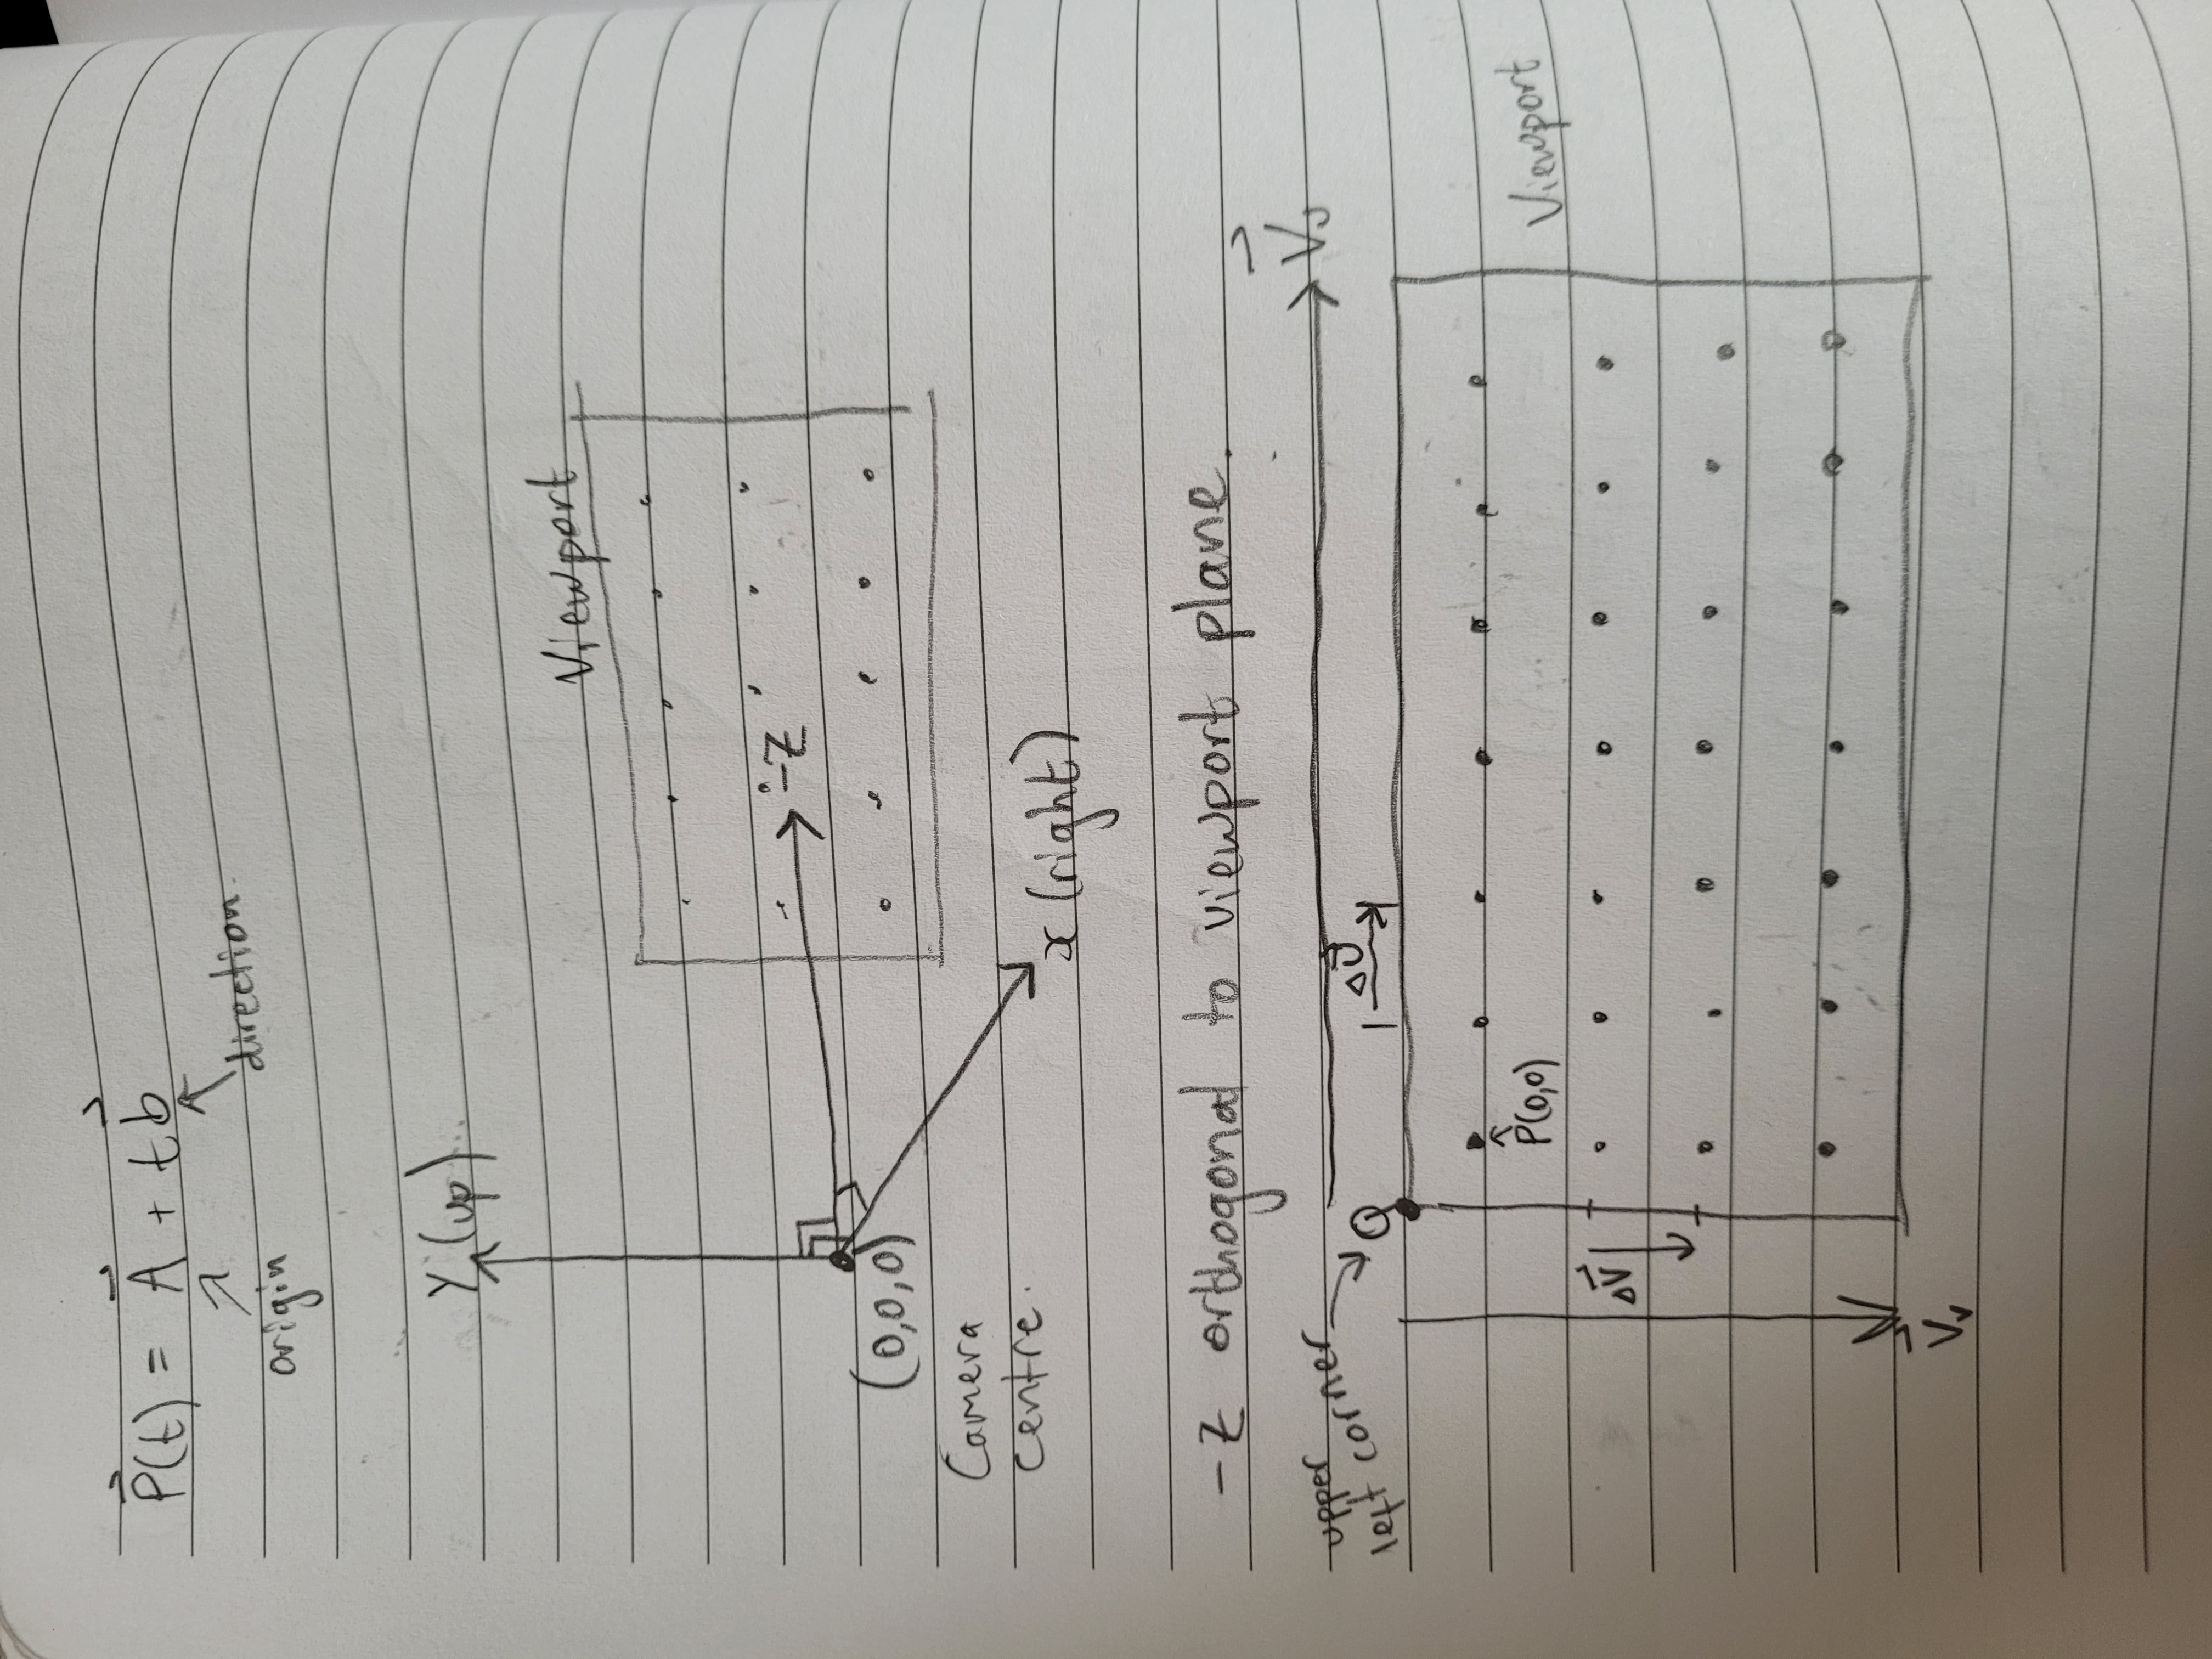 P⃗(t) = A⃗ + t b⃗
origin
direction.
Y (up)
Viewport
-Z
(0,0,0)
Camera
centre.
x (right)
-Z orthogonal to viewport plane.
V⃗ᵤ
upper
left corner
Q
Δu⃗
P(0,0)
Viewport
ΔV⃗
V⃗ᵥ